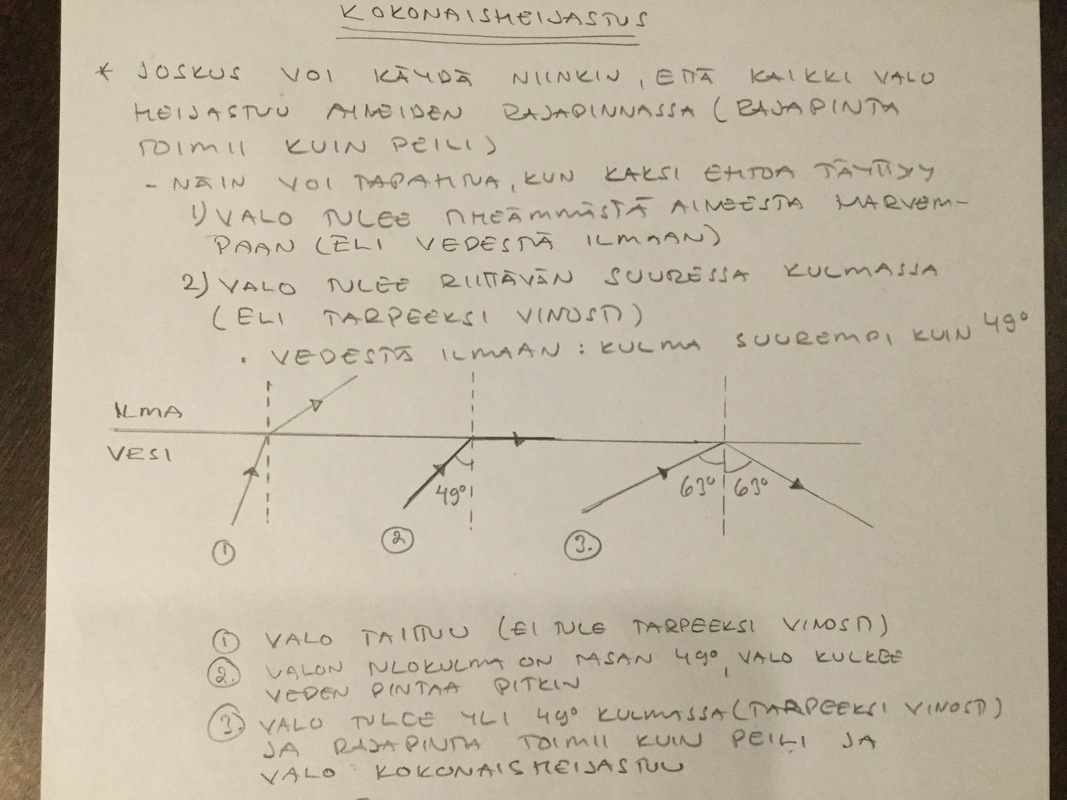 KOKONAISHEIJASTUS
* JOSKUS VOI KÄYDÄ NIINKIN, ETTÄ KAIKKI VALO
HEIJASTUU AINEIDEN RAJAPINNASSA (RAJAPINTA
TOIMII KUIN PEILI)
- NÄIN VOI TAPAHTUA, KUN KAKSI EHTOA TÄYTTYY
1) VALO TULEE TIHEÄMMÄSTÄ AINEESTA HARVEM-
PAAN (ELI VEDESTÄ ILMAAN)
2) VALO TULEE RIITTÄVÄN SUURESSA KULMASSA
(ELI TARPEEKSI VINOSTI)
• VEDESTÄ ILMAAN: KULMA SUUREMPI KUIN 49°
ILMA
VESI
49° 63° 63°
1 2 3.
1 VALO TAITTUU (EI TULE TARPEEKSI VINOSTI)
2. VALON TULOKULMA ON TASAN 49°, VALO KULKEE
VEDEN PINTAA PITKIN
3. VALO TULEE YLI 49° KULMASSA (TARPEEKSI VINOSTI)
JA RAJAPINTA TOIMII KUIN PEILI JA
VALO KOKONAISHEIJASTUU